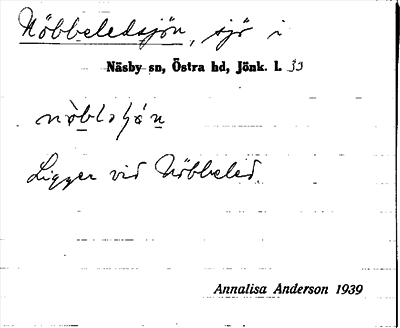 Nöbbeledssjön, sjö i
Näsby sn, Östra hd, Jönk. l. 33
Ligger vid Nöbbeled.
Annalisa Anderson 1939